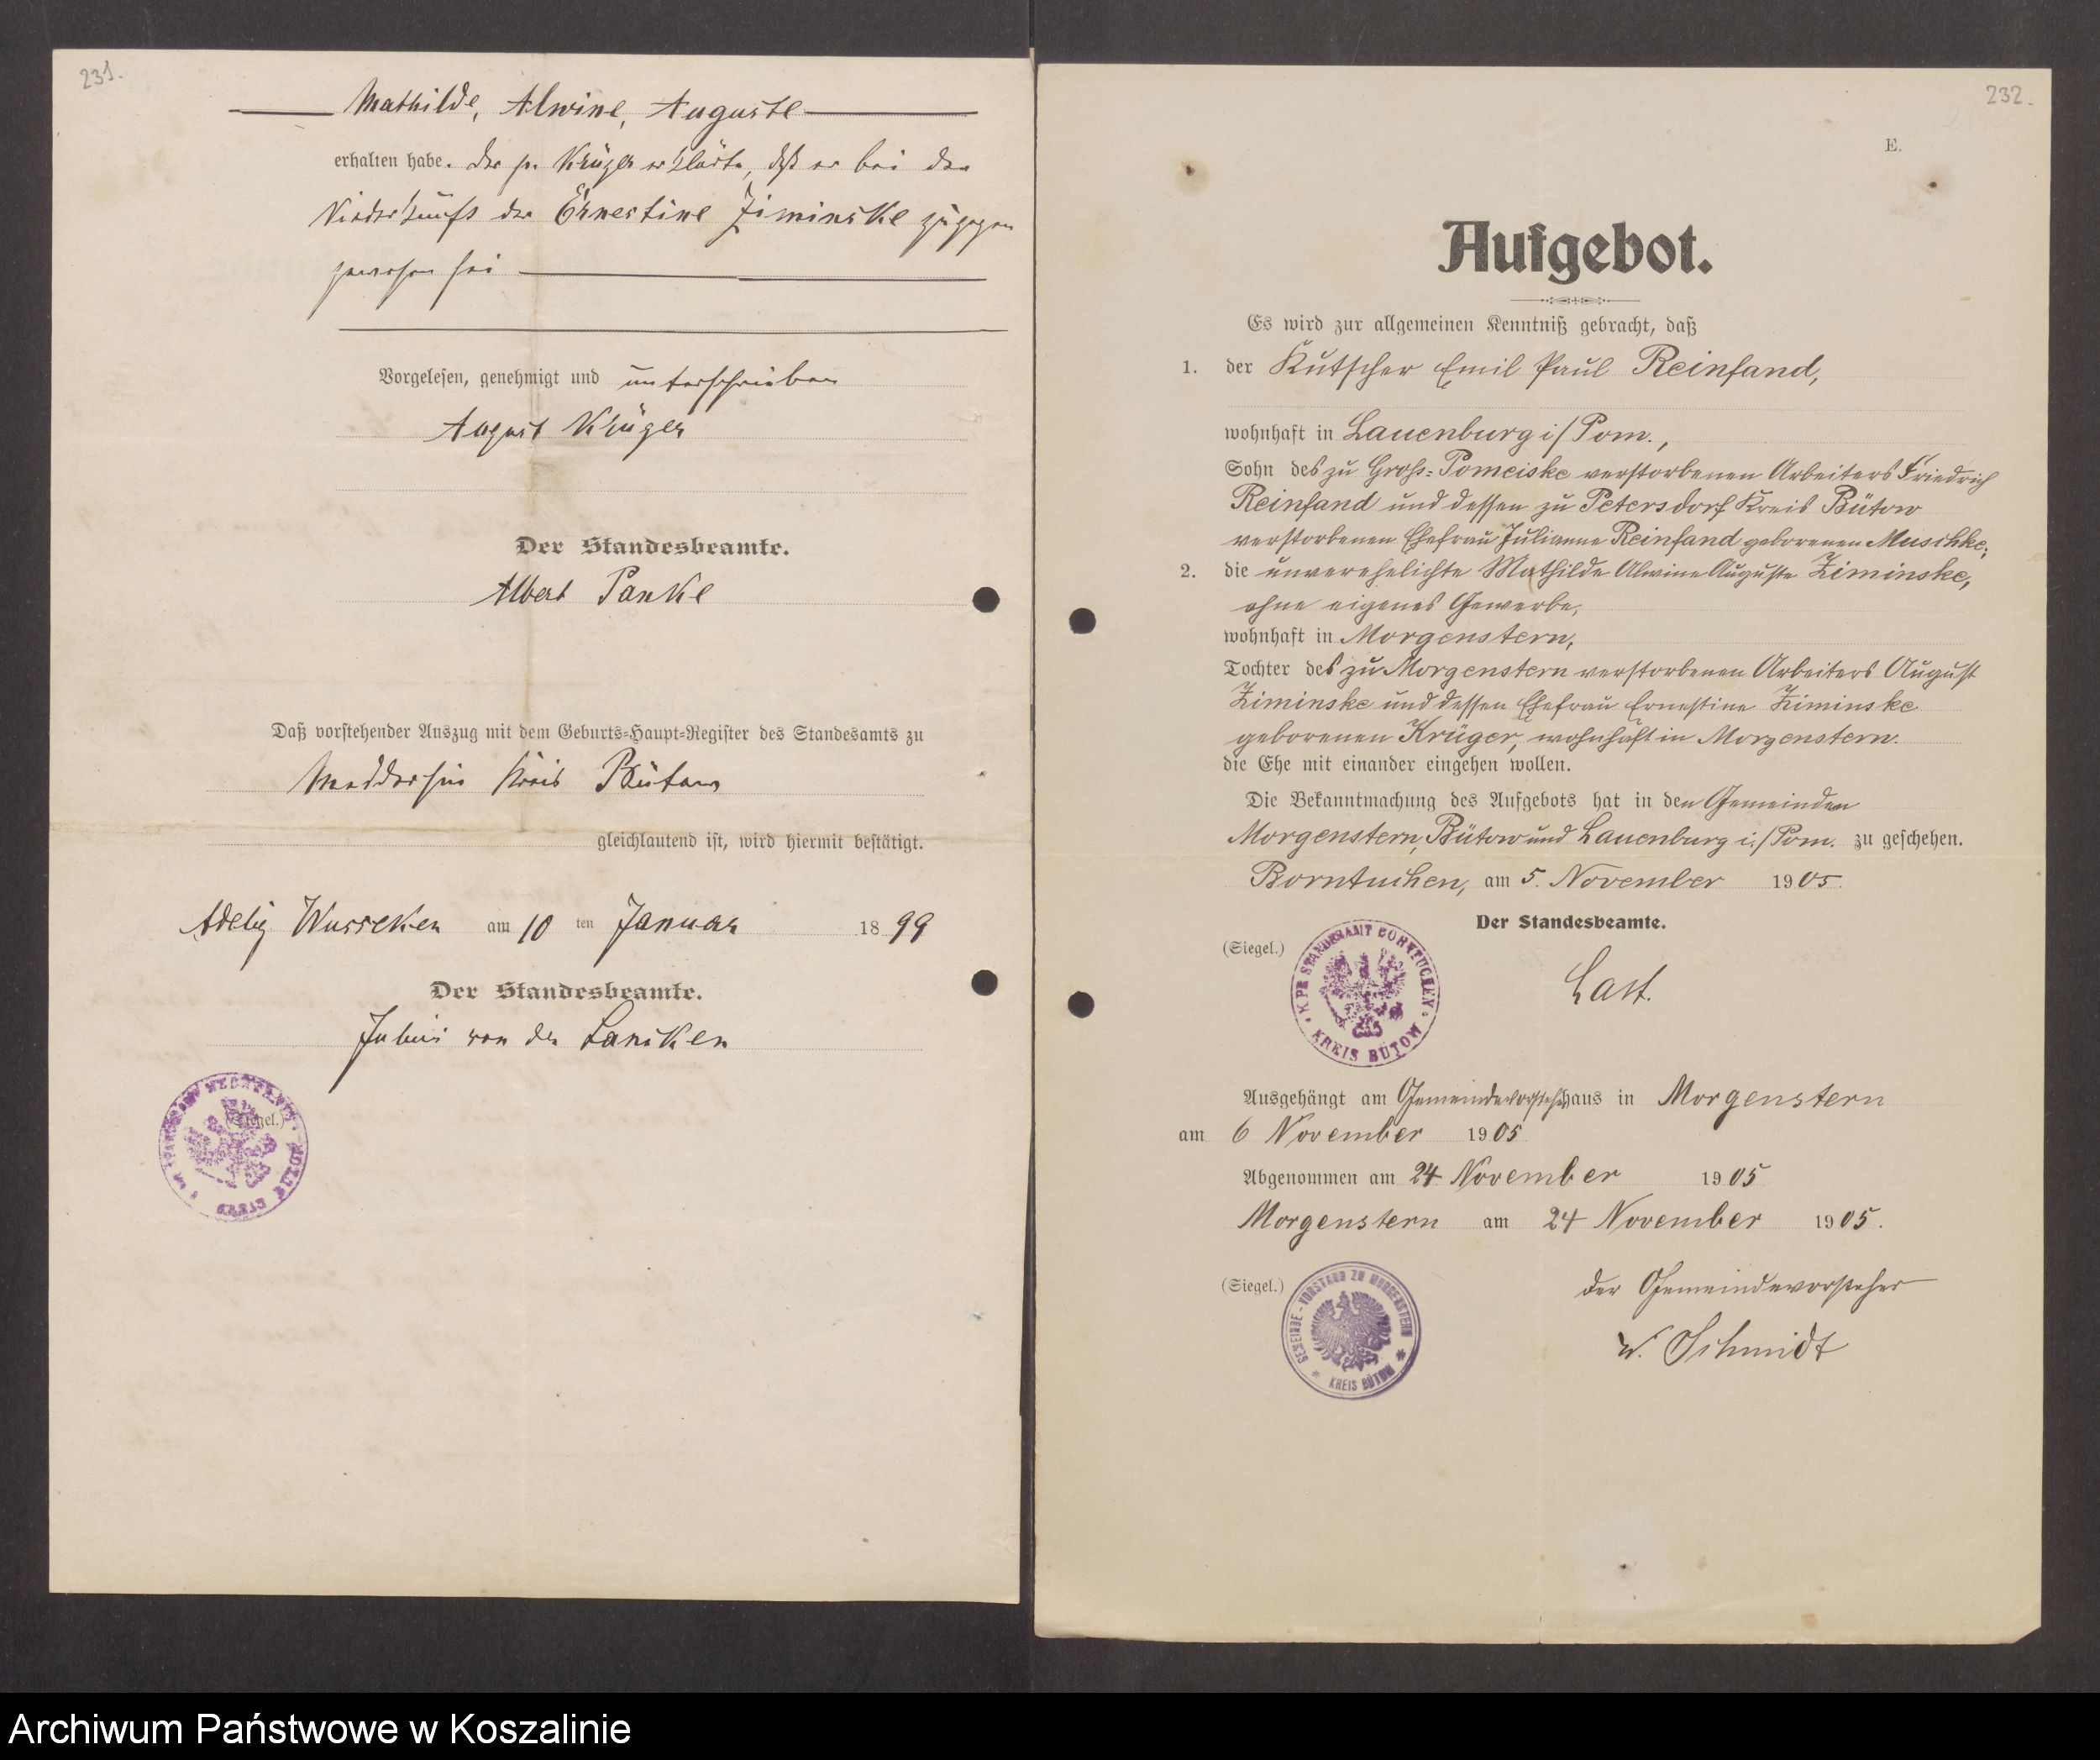 231.
Mathilde, Alwine, Auguste
erhalten habe. Der p. Krüger erklärte, daß er bei der
Niederkunft der Ernestine Ziminske zugegen
gewesen sei
Vorgelesen, genehmigt und unterschrieben
August Krüger
Der Standesbeamte.
Albert Panke
Daß vorstehender Auszug mit dem Geburts-Haupt-Register des Standesamts zu
Meddersin Kreis Bütow
gleichlautend ist, wird hiermit bestätigt.
Adelig Wusseken am 10 ten Januar 1899
Der Standesbeamte.
Julius von der Lancken
(Siegel.)
232.
E.
Aufgebot.
Es wird zur allgemeinen Kenntniß gebracht, daß
1. der Kutscher Emil Paul Reinfand,
wohnhaft in Lauenburg i/Pom.,
Sohn des zu Groß-Pomeiske verstorbenen Arbeiters Friedrich
Reinfand und dessen zu Petersdorf Kreis Bütow
verstorbenen Ehefrau Julianne Reinfand geborenen Muschke;
2. die unverehelichte Mathilde Alwine Auguste Ziminske,
ohne eigenes Gewerbe,
wohnhaft in Morgenstern,
Tochter des zu Morgenstern verstorbenen Arbeiters August
Ziminske und dessen Ehefrau Ernestine Ziminske
geborenen Krüger, wohnhaft in Morgenstern.
die Ehe mit einander eingehen wollen.
Die Bekanntmachung des Aufgebots hat in den Gemeinden
Morgenstern, Bütow und Lauenburg i./Pom. zu geschehen.
Borntuchen, am 5. November 1905.
Der Standesbeamte.
(Siegel.)
K. PR. STANDESAMT BORNTUCHEN
KREIS BÜTOW
Last.
Ausgehängt am Gemeindevorsteherhaus in Morgenstern
am 6 November 1905
Abgenommen am 24 November 1905
Morgenstern am 24 November 1905.
(Siegel.)
GEMEINDE-VORSTAND ZU MORGENSTERN
* KREIS BÜTOW *
der Gemeindevorsteher
W. Schmidt
Archiwum Państwowe w Koszalinie